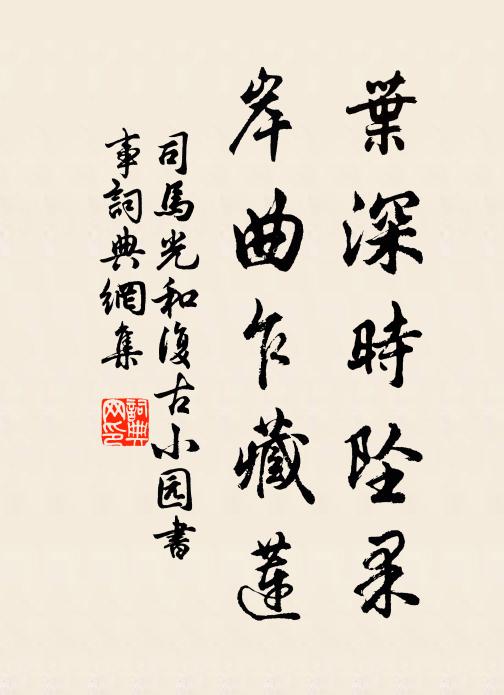 葉深時墜果
岸曲乍藏蓮
司馬光和復古小园書
事詞典網集
詞典
网印